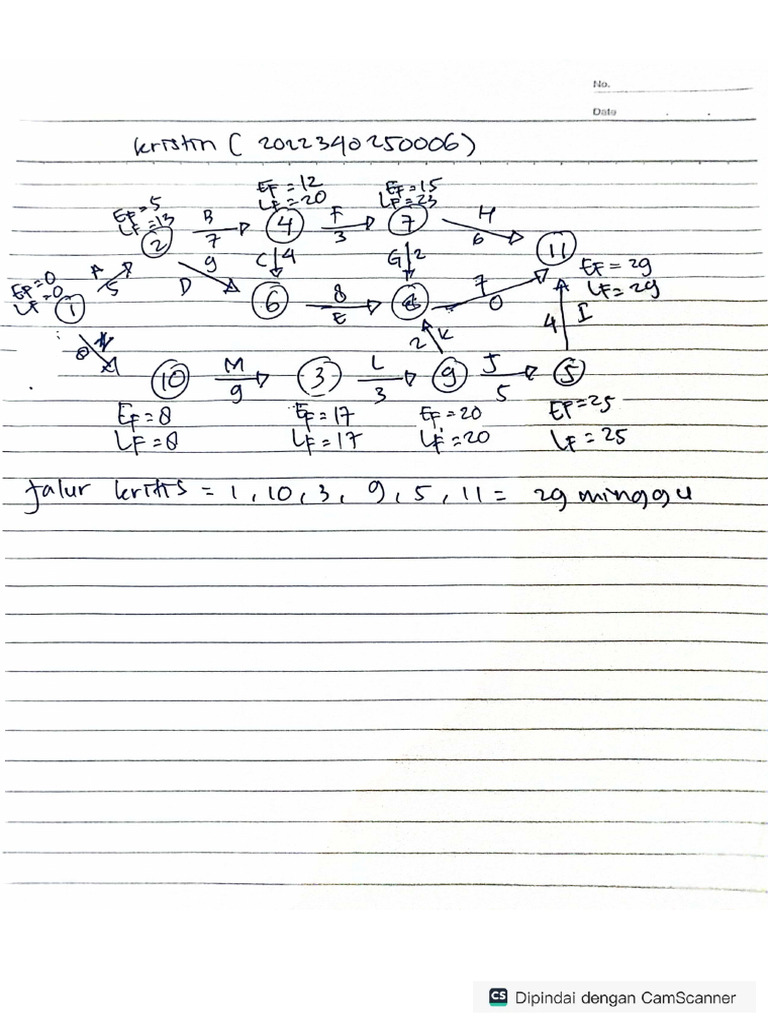 No.
Date
Kristin (2022340250006)
EF = 12
LF = 20
EF = 15
LF = 23
EF = 5
LF = 13
B
7
4
F
3
7
H
6
11
2
9
D
C 4
G 2
EF = 29
LF = 29
EF = 0
LF = 0
1
A
5
6
8
E
8
7
O
4 I
8
2 K
10
M
9
3
L
3
9
J
5
5
EF = 8
LF = 8
EF = 17
LF = 17
EF = 20
LF = 20
EF = 25
LF = 25
Jalur kritis = 1, 10, 3, 9, 5, 11 = 29 minggu
CS Dipindai dengan CamScanner